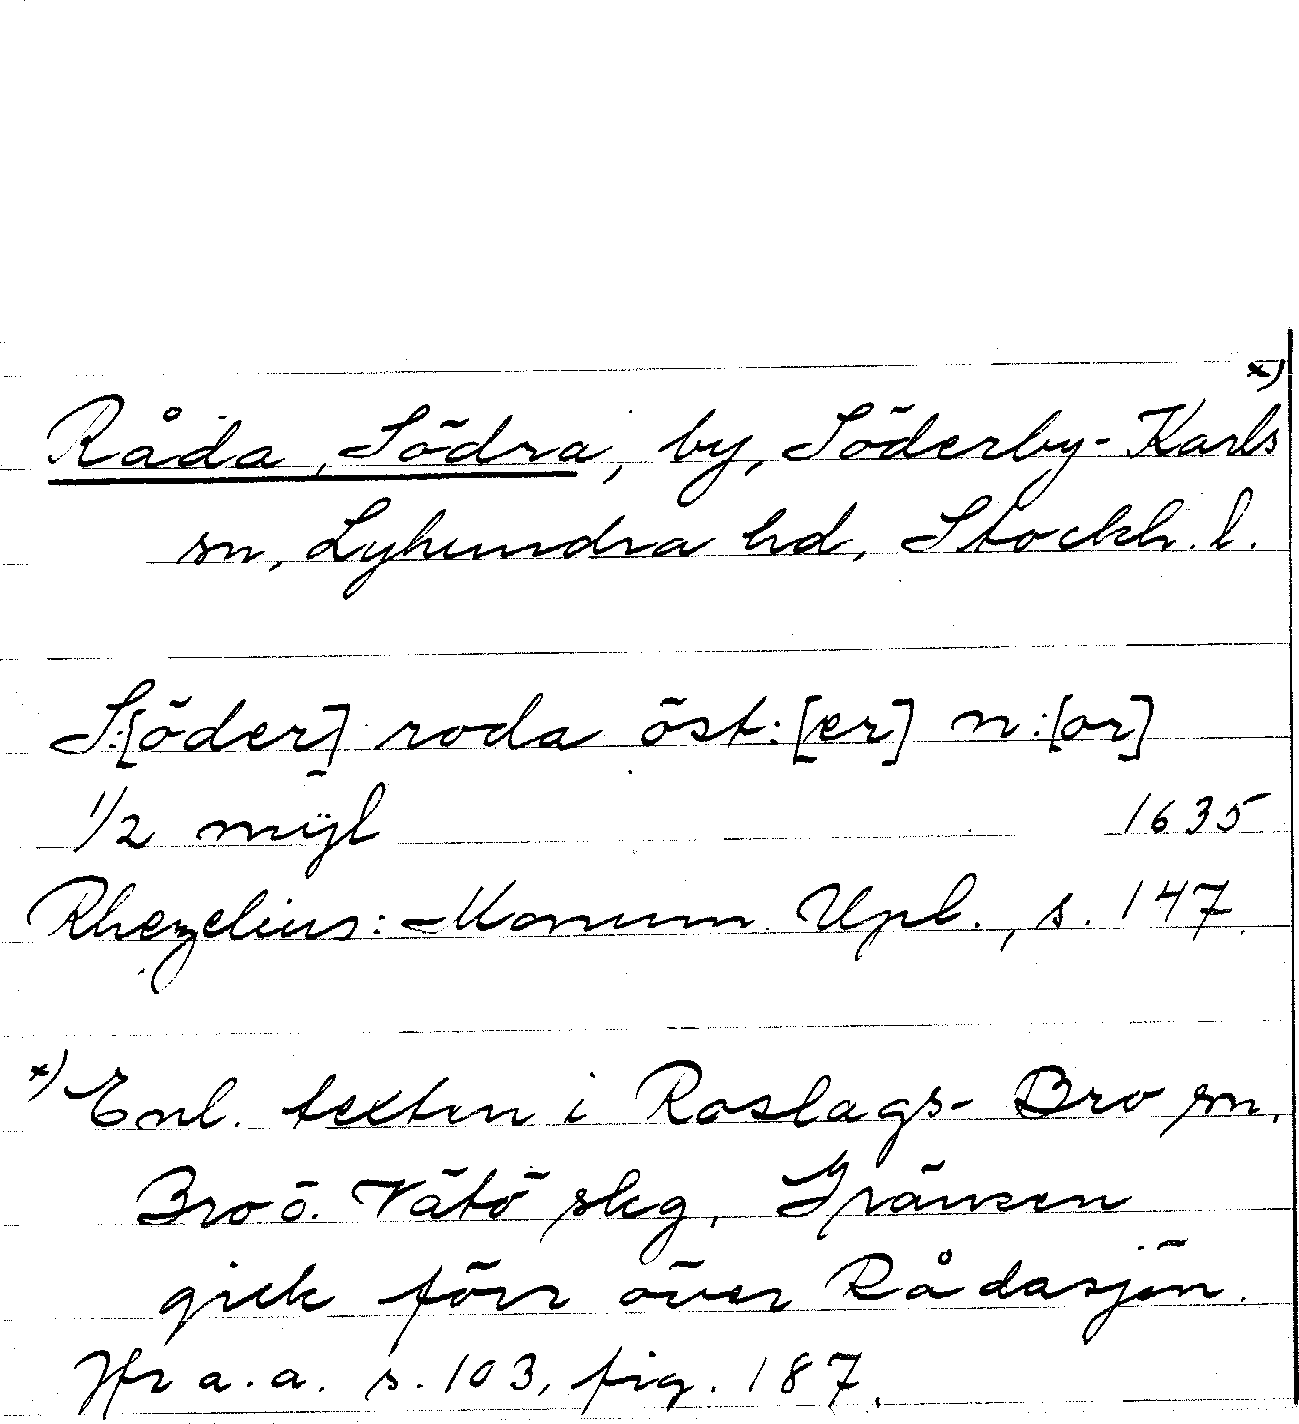 x)
Råda, Södra, by, Söderby-Karls
sn, Lyhundra hd, Stockh. l.
S:[öder] roda öst:[er] n:[or]
1/2 mÿl 1635
Rhezelius: Monum. Upl., s. 147.
x) Enl. texten i Roslags-Bro sn,
Bro o. Vätö skg. Gränsen
gick förr över Rådasjön.
Jfr a.a. s. 103, fig. 187.